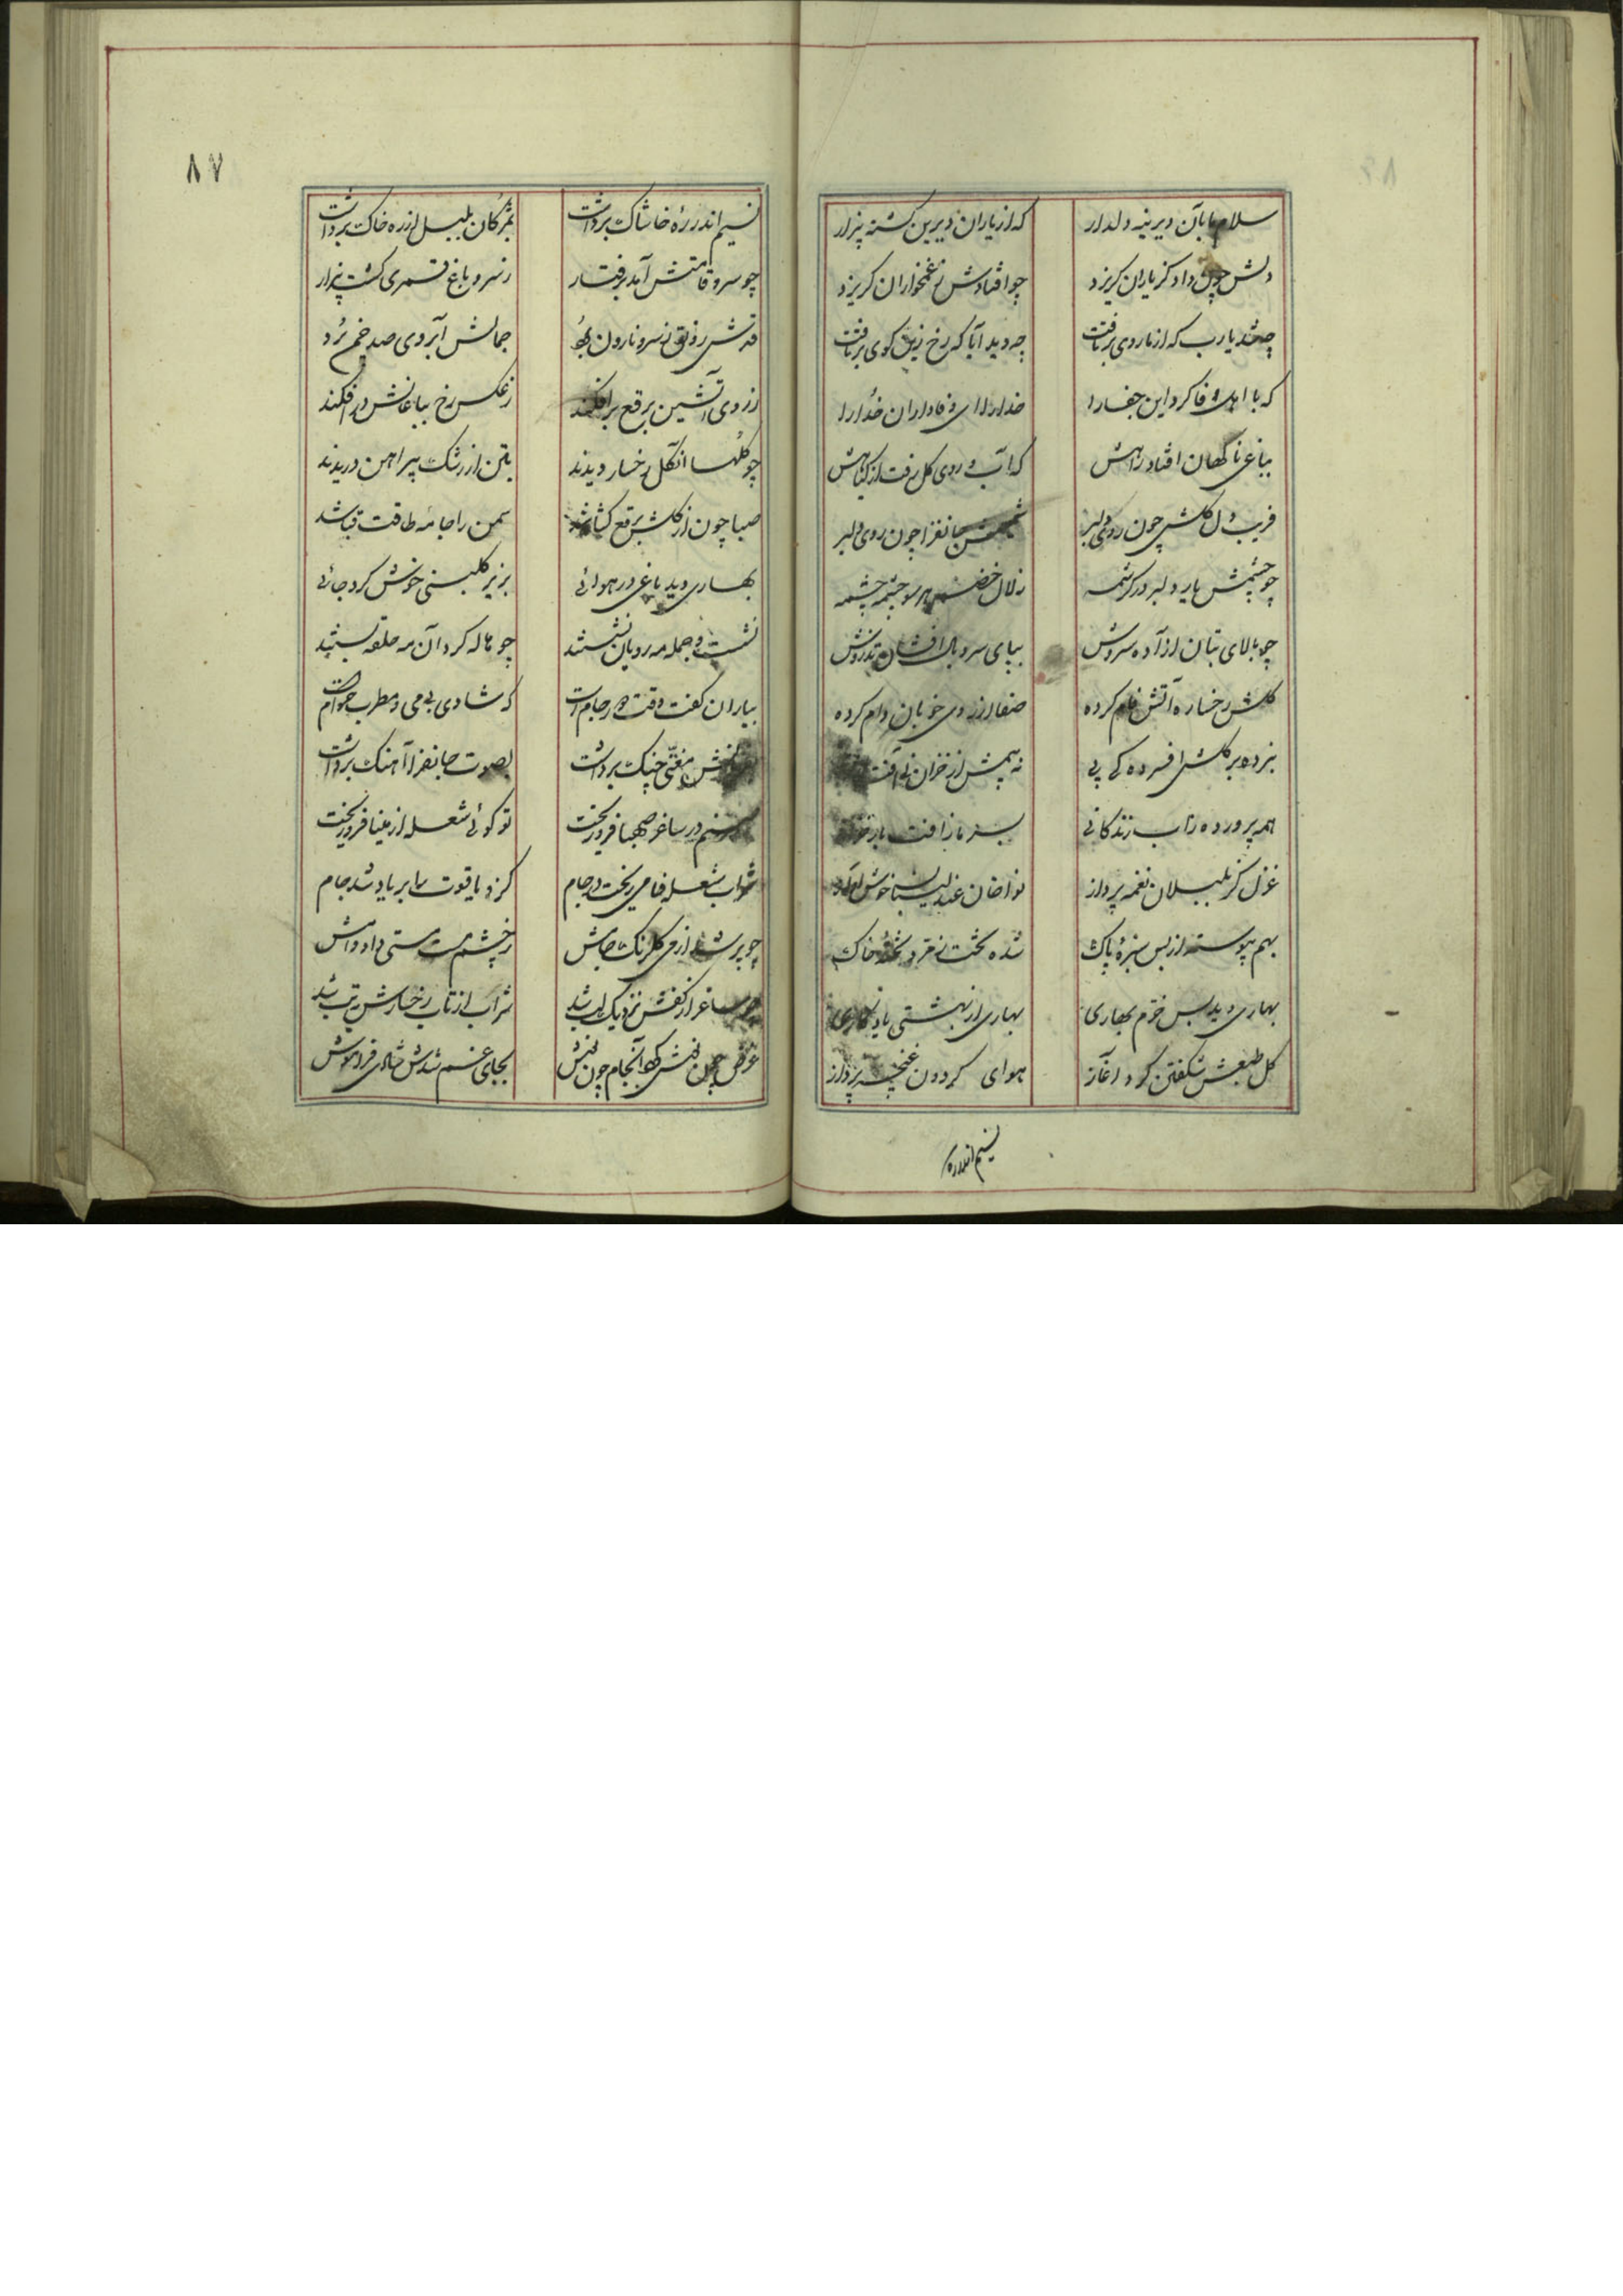 سلام ما بآن دیرینه دلدار که از یاران دیرین کشته بیزار
دلش چون داد کز یاران کریزد چو افتادش ز غمخواران کریزد
چه شد یارب که از ما روی برتافت چه دید آیا که رخ زین کوی برتافت
که با اهل وفا کرد این جفا را خدا را ای وفاداران خدا را
بباغی ناکهان افتاد راهش که آب روی کل رفت از کیاهش
فریب دل کلش چون روی دلبر جانفزا چون روی دلبر
چو چشمش یار دلبر در کرشمه زلال خضر هر سو چشمه چشمه
چو بالای بتان آزاده سروش بپای سرو بال افشان تذروش
کلش رخساره آتش فام کرده صفا از روی خوبان وام کرده
نبرده بر کلش افسرده کی پی نه بیمش از خزان نی آفت
همه پرورده زآب زندکانی
غزل کر بلبلان نغمه پرداز نواخان عندلیبان خوش آواز
بهم پیوسته از بس سبزهٔ پاک شده تخت زمرد تختهٔ خاک
بهاری دید بس خرم بهاری بهاری از بهشتی یادکاری
کل طبعش شکفتن کرد آغاز هوای کردون غنچه پرداز
نسیم اندر ره
۸۷
نسیم اندر ره خاشاک برداشت بمژکان بلبل از ره خاک برداشت
چو سرو قامتش آمد برفتار ز سرو باغ قمری کشت بیزار
قدش رونق ز سرو نارون برد جمالش آبروی صد خم برد
ز روی آتشین برقع برافکند ز عکس رخ بباغ آتش درافکند
چو کلها آن کل رخسار دیدند بتن از رشک پیراهن دریدند
صبا چون از کلش برقع کشا شد سمن را جامه طاقت قبا شد
بهاری دید باغی در هوائی بزیر کلبنی خوش کرد جائی
نشست و جمله مه رویان نشستند چو هاله کرد آن مه حلقه بستند
بیاران کفت وقت دور جام است که شادی بی می و مطرب حرام است
مغنی چنک برداشت بصوت جانفزا آهنک برداشت
در ساغر صهبا فرو ریخت تو کوئی شعله از مینا فرو ریخت
شراب شعله فامی ریخت در جام کزو یاقوت را بر باد شد جام
چو پر شد از می کلرنک جامش ز چشم مست مستی داد وامش
چو ساغر از کفش نزدیک لب شد شراب از تاب رخسارش بتب شد
عوض چون لبش آنجام چون نوش بجای غم شدش شادی فراموش